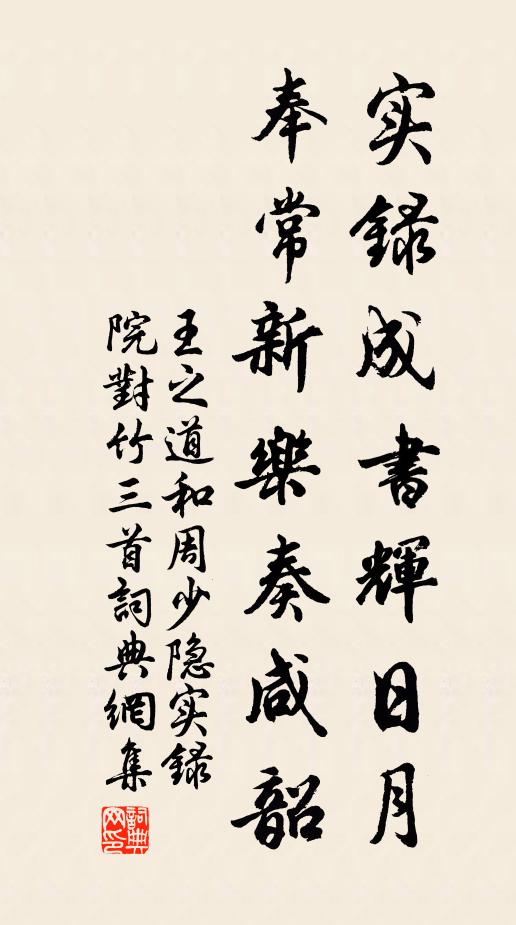 实録成書輝日月
奉常新樂奏咸韶
王之道和周少隐实録
院對竹三首詞典網集
詞典网印